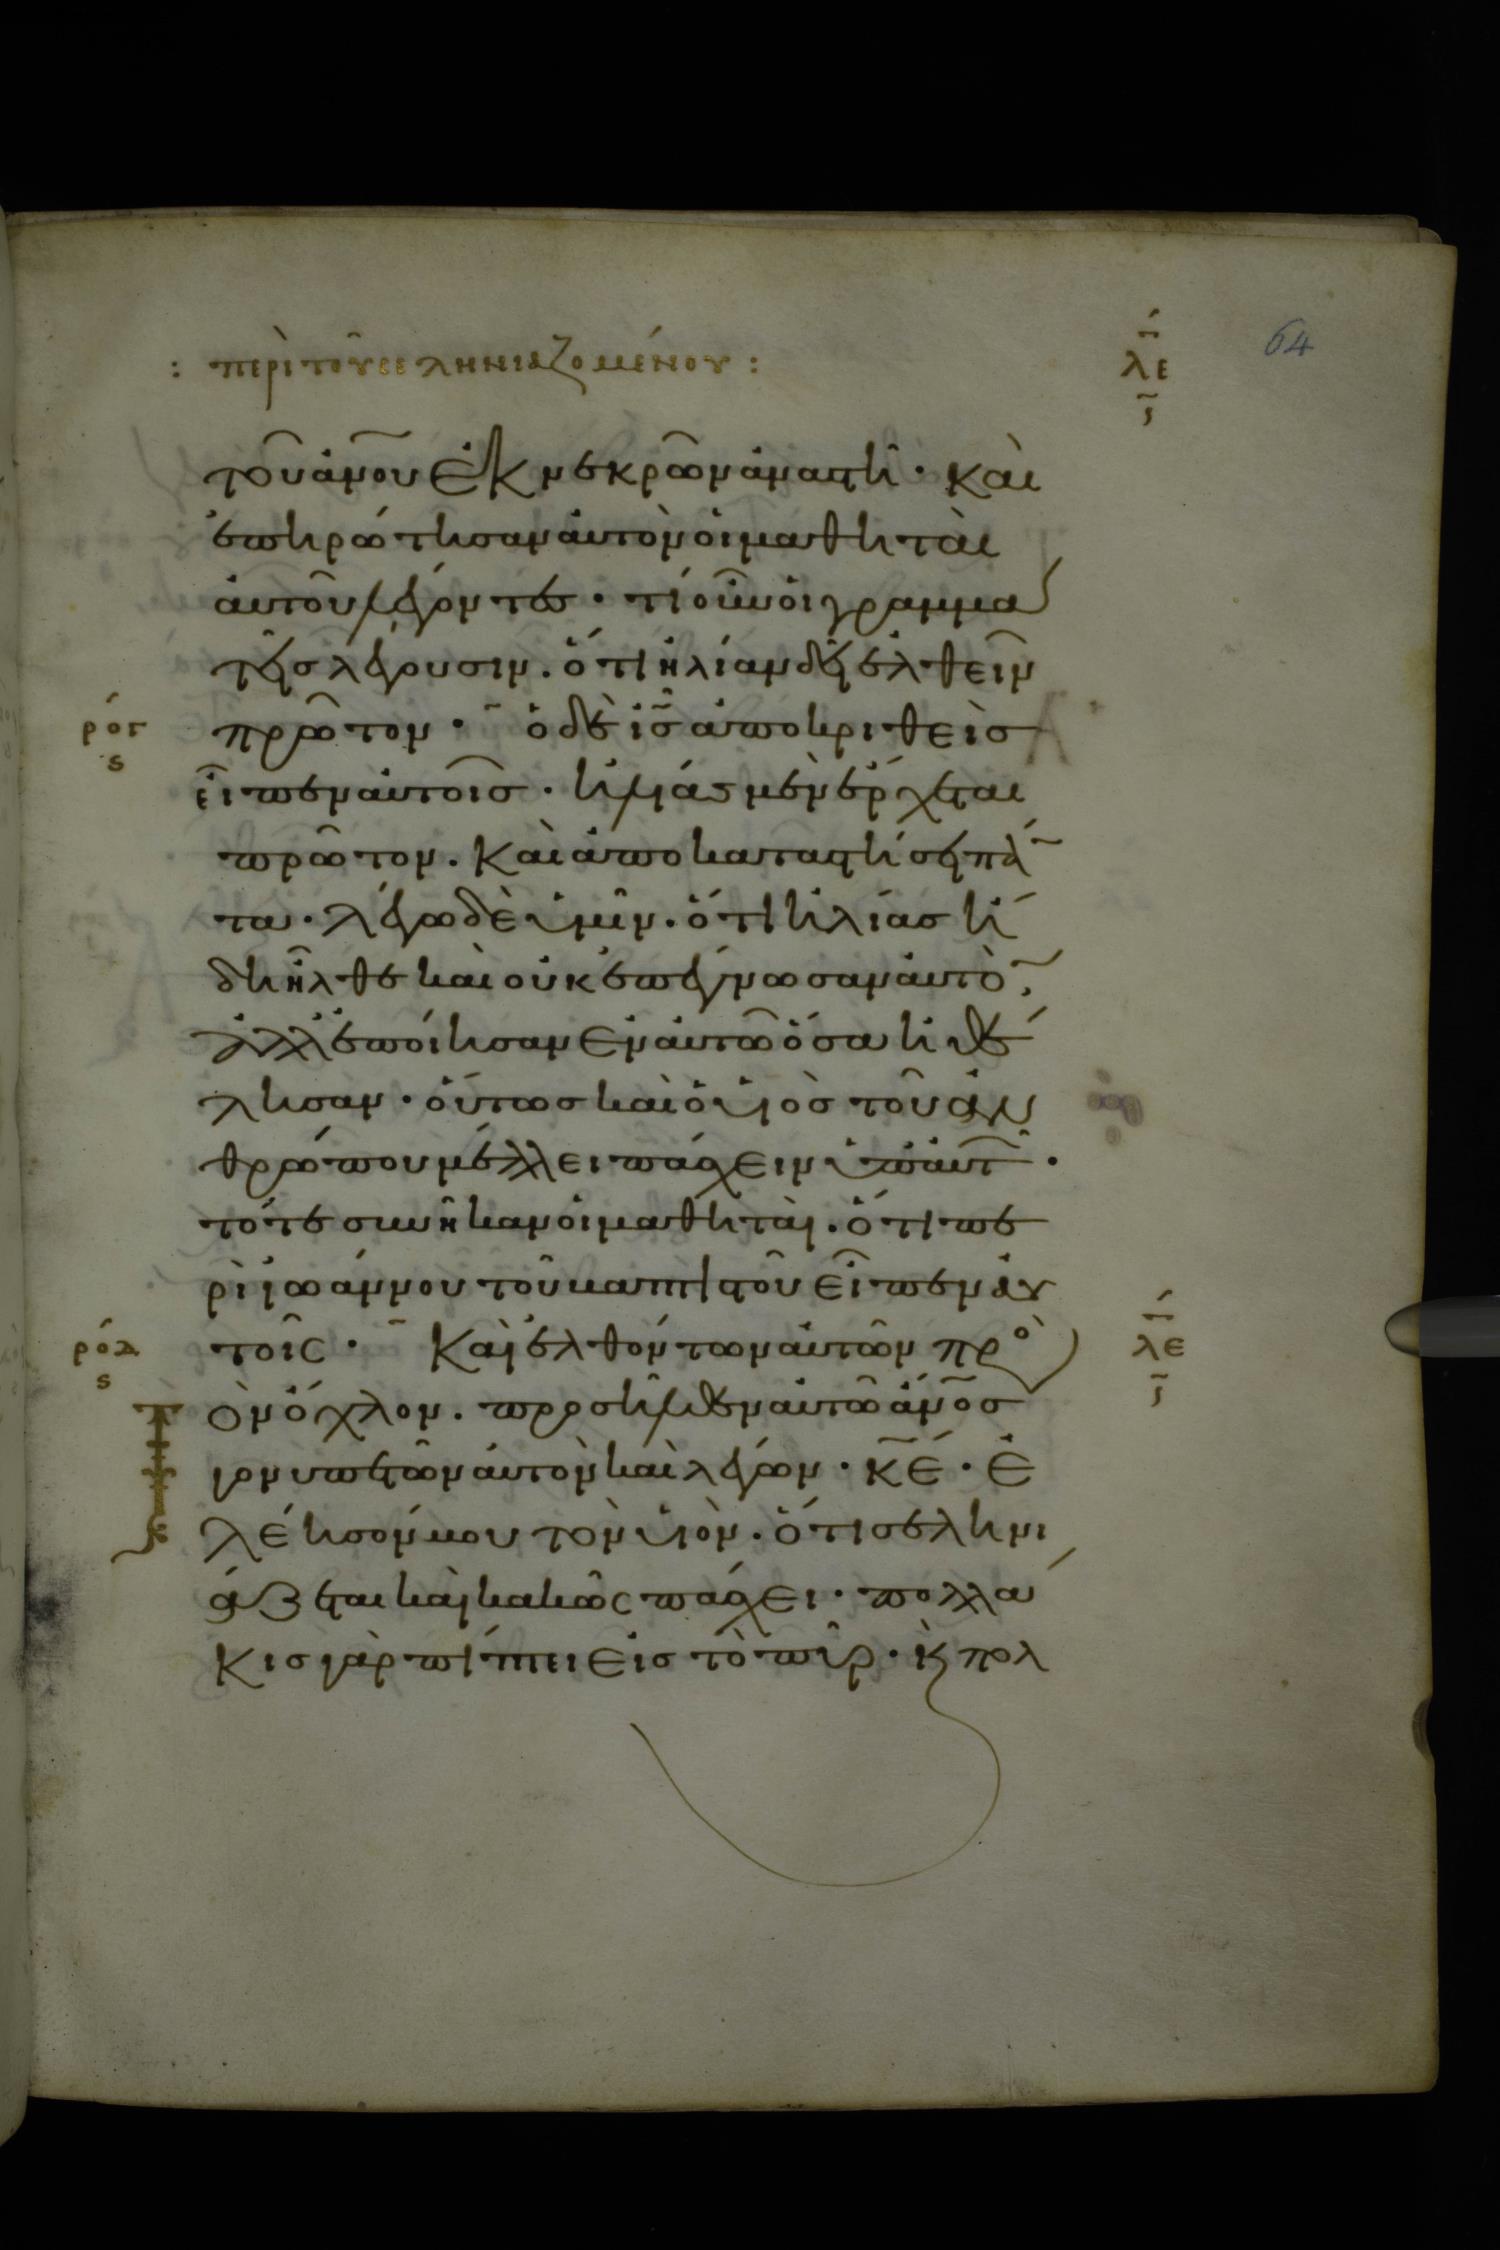 : περὶ τοῦ σεληνιαζομένου :
λε
64
τοῦ ἀνου ἐκ νεκρῶν ἀναστῆ · Καὶ
ἐπηρώτησαν αὐτὸν οἱ μαθηταὶ
αὐτοῦ λέγοντες · τί οὖν οἱ γραμμα
τεῖς λέγουσιν · ὅτι ἠλίαν δεῖ ἐλθεῖν
ρογ
ς
πρῶτον · ὁ δὲ ις ἀποκριθεὶς
εἶπεν αὐτοῖς · ἠλίας μὲν ἔρχεται
πρῶτον · Καὶ ἀποκαταστήσει πά
τα · λέγω δὲ ὑμῖν · ὅτι ἠλίας ἤ
δη ἦλθε καὶ οὐκ ἐπέγνωσαν αὐτὸ ·
ἀλλ' ἐποίησαν ἐν αὐτῶ ὅσα ἠθέ
λησαν · οὕτως καὶ ὁ υἱὸς τοῦ ἀν
θρώπου μέλλει πάσχειν ὑπ' αὐτ ·
τότε συνῆκαν οἱ μαθηταὶ · ὅτι πε
ρὶ ἰωάννου τοῦ βαπτιστοῦ εἶπεν αὐ
ροδ
ς
τοῖς · Καὶ ἐλθόντων αὐτῶν πρὸ
λε
ὸν ὄχλον · προσῆλθεν αὐτῶ ἀνος
γονυπετῶν αὐτὸν καὶ λέγων · κε · ἐ
λέησόν μου τὸν υἱὸν · ὅτι σεληνι
άζεται καὶ κακῶς πάσχει · πολλά
κις γὰρ πίπτει εἰς τὸ πῦρ · ϗ πολ